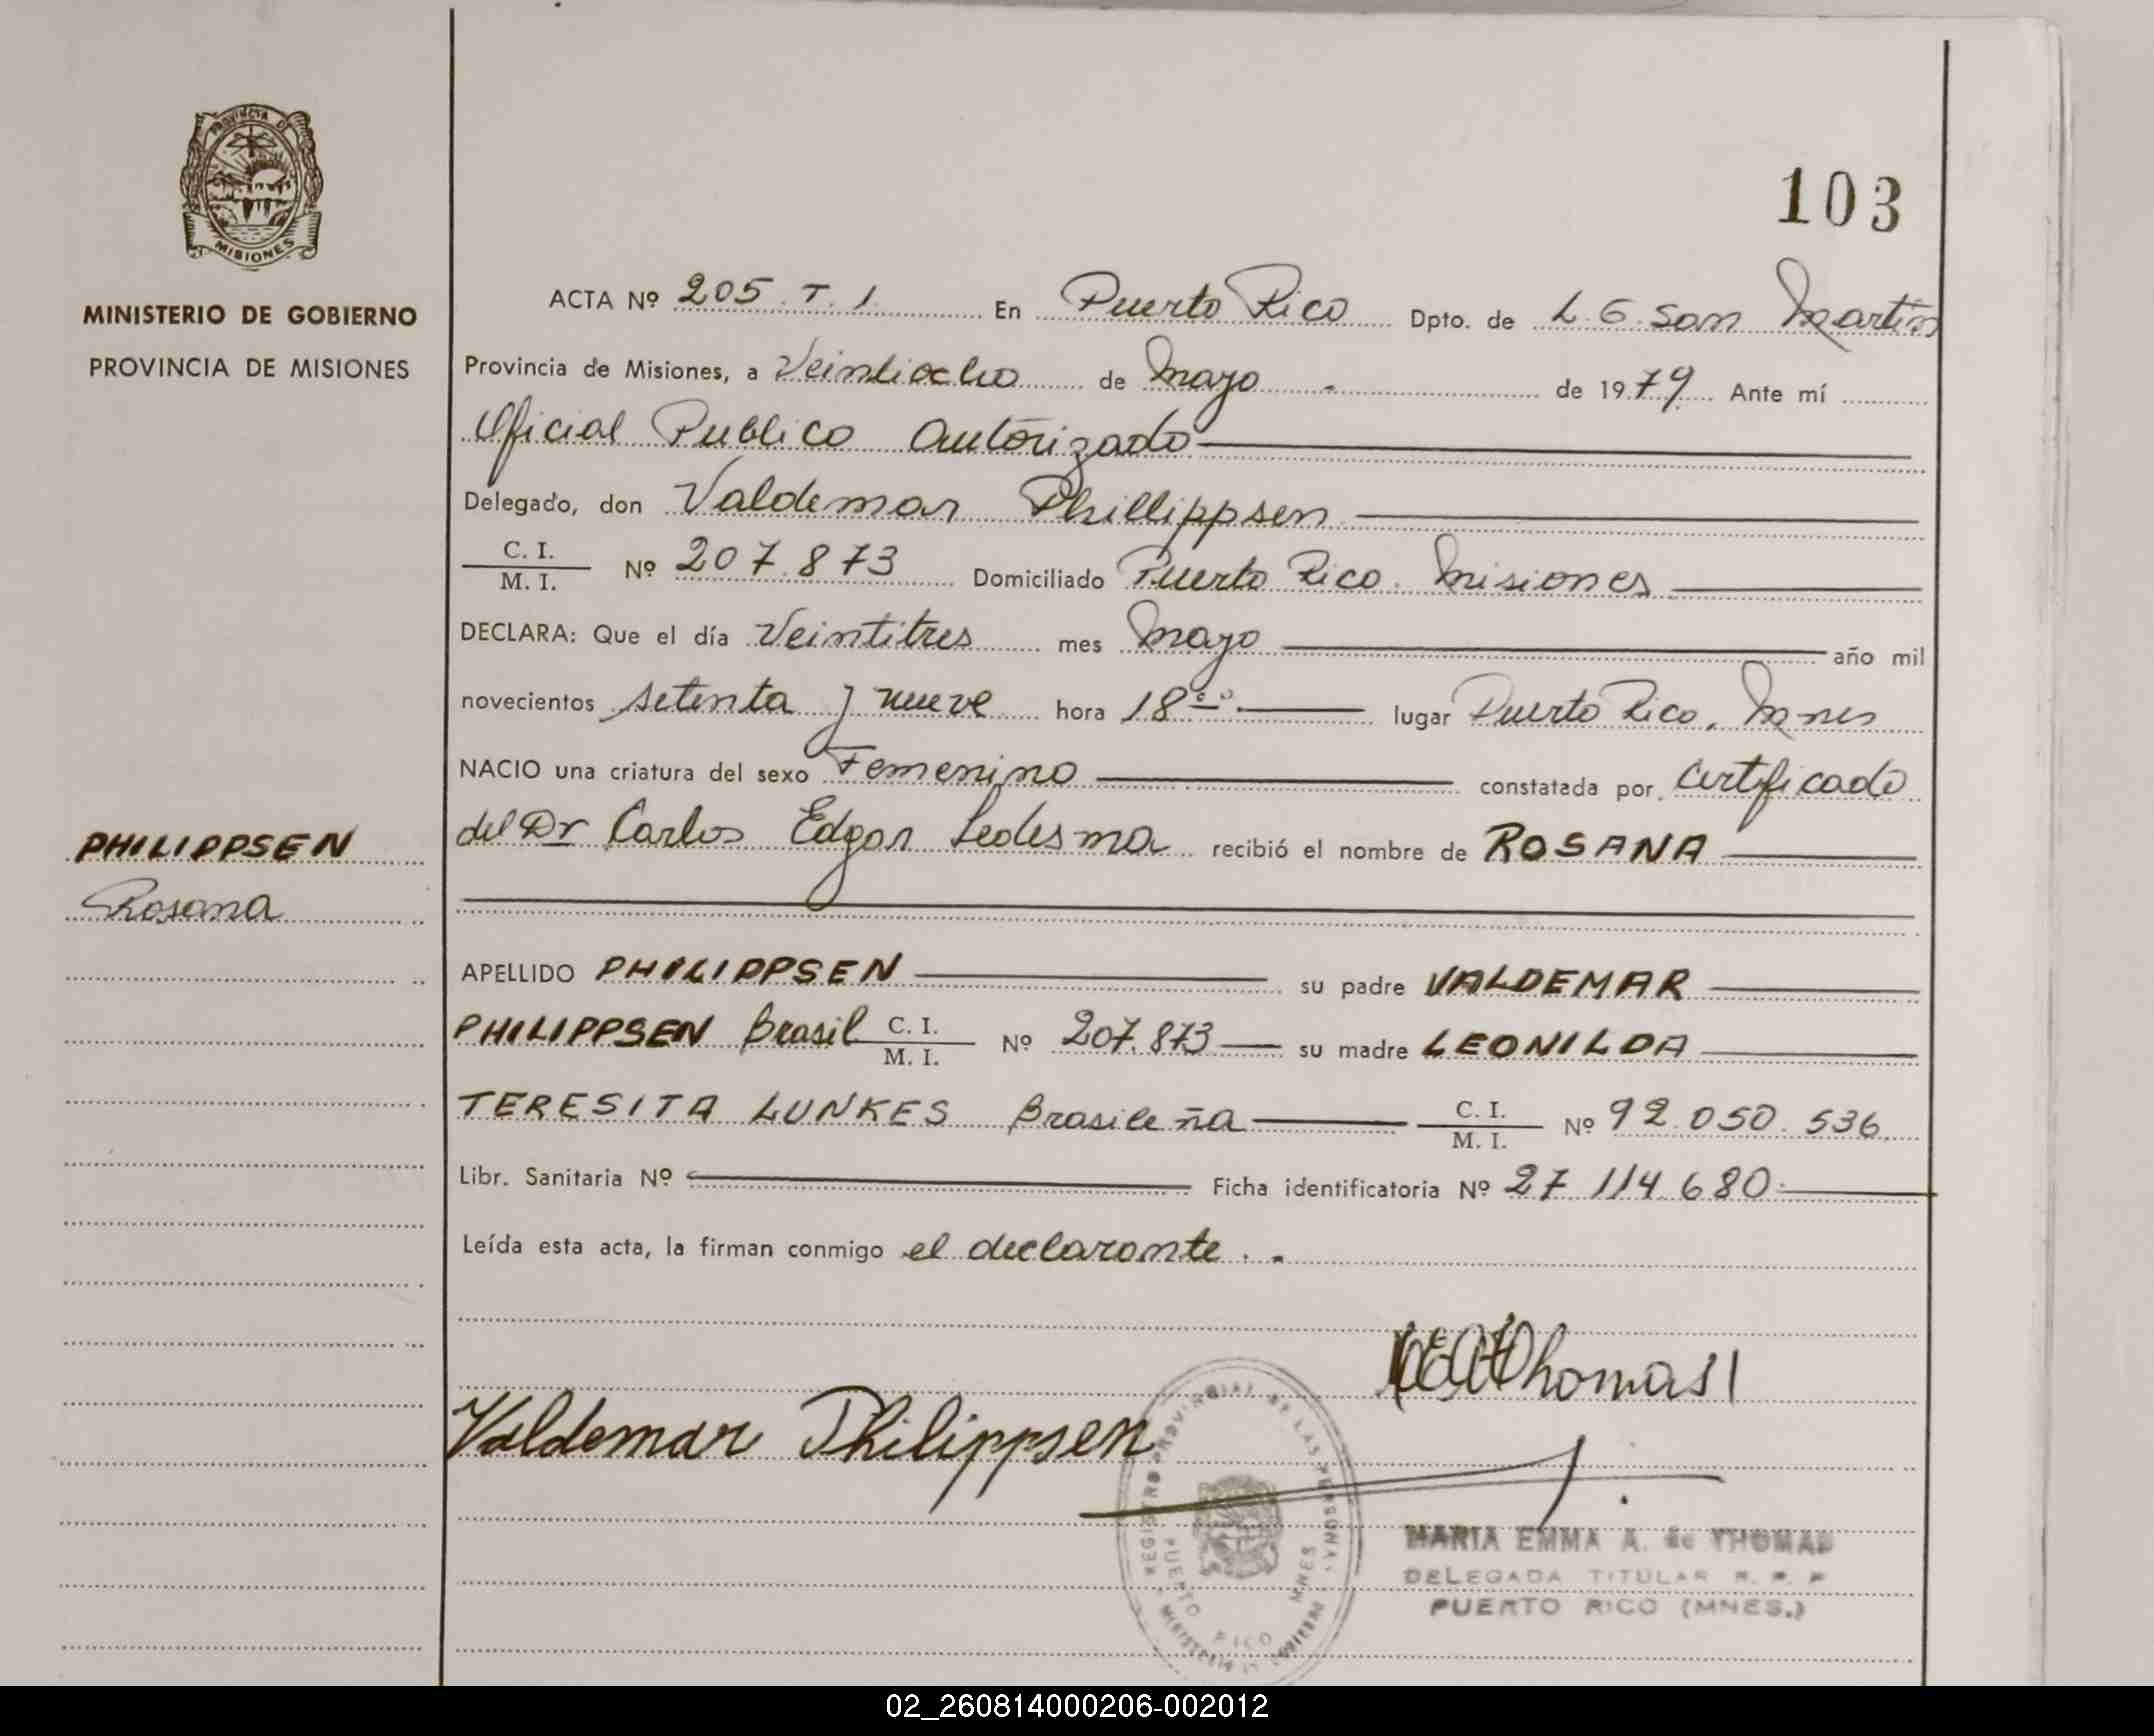 103
PROVINCIA DE
MISIONES
MINISTERIO DE GOBIERNO
PROVINCIA DE MISIONES
PHILIPPSEN
Rosana
ACTA Nº 205. T. 1. En Puerto Rico Dpto. de L. G. San Martin
Provincia de Misiones, a Veintiocho de Mayo - de 1979. Ante mí
Oficial Publico Autorizado
Delegado, don Valdemar Phillippsen
C. I.
M. I. Nº 207.873 Domiciliado Puerto Rico. Misiones
DECLARA: Que el día Veintitres mes Mayo año mil
novecientos setenta y nueve hora 18 lugar Puerto Rico. Mnes
NACIO una criatura del sexo Femenino constatada por Certificado
del Dr Carlos Edgar Ledesma recibió el nombre de ROSANA
APELLIDO PHILIPPSEN su padre VALDEMAR
PHILIPPSEN Brasil C. I.
M. I. Nº 207.873 su madre LEONILDA
TERESITA LUNKES Brasileña C. I.
M. I. Nº 92.050.536.
Libr. Sanitaria Nº Ficha identificatoria Nº 27.114.680
Leída esta acta, la firman conmigo el declarante. -
Thomas
Valdemar Philippsen
REGISTRO PROVINCIAL DE LAS PERSONAS
PUERTO RICO MNES
MINISTERIO DE GOBIERNO
MARIA EMMA A. de THOMAS
DELEGADA TITULAR R. P. P
PUERTO RICO (MNES.)
02_260814000206-002012